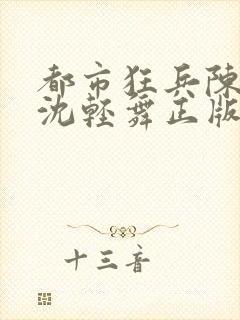 都市狂兵陳
沈輕舞正版
十三音